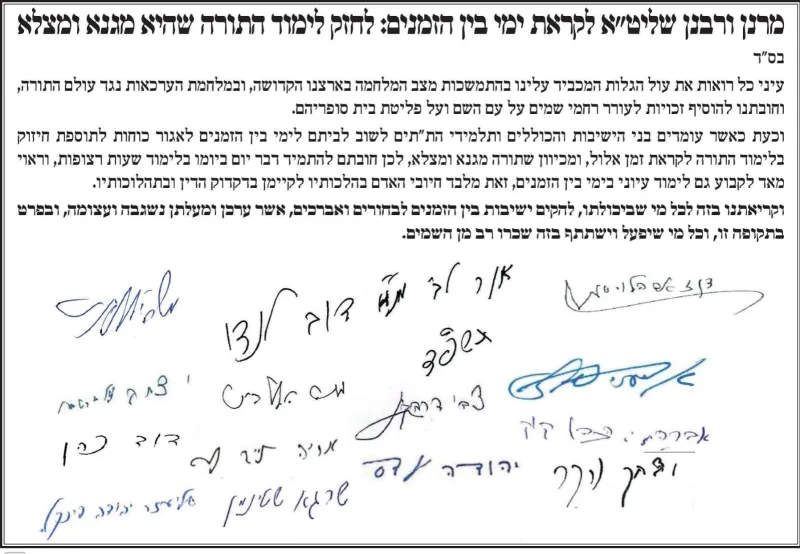 מרנן ורבנן שליט"א לקראת ימי בין הזמנים: לחזק לימוד התורה שהיא מגנא ומצלא
בס"ד
עיני כל רואות את עול הגלות המכביד עלינו בהתמשכות מצב המלחמה בארצנו הקדושה, ובמלחמת הערכאות נגד עולם התורה,
וחובתנו להוסיף זכויות לעורר רחמי שמים על עם השם ועל פליטת בית סופריהם.
וכעת כאשר עומדים בני הישיבות והכוללים ותלמידי הת"תים לשוב לביתם לימי בין הזמנים לאגור כוחות לתוספת חיזוק
בלימוד התורה לקראת זמן אלול, ומכיוון שתורה מגנא ומצלא, לכן חובתם להתמיד דבר יום ביומו בלימוד שעות רצופות, וראוי
מאד לקבוע גם לימוד עיוני בימי בין הזמנים, זאת מלבד חיובי האדם בהלכותיו לקיימן בדקדוק הדין ובתהלוכותיו.
וקריאתנו בזה לכל מי שביכולתו, להקים ישיבות בין הזמנים לבחורים ואברכים, אשר ערכן ומעלתן נשגבה ועצומה, ובפרט
בתקופה זו, וכל מי שיפעל וישתתף בזה שכרו רב מן השמים.
דוב לנדו
תשפ"ד
צבי דרבקין
דוב כהן
יהודה עדס
שרגא שטינמן
אליעזר יהודה פינקל